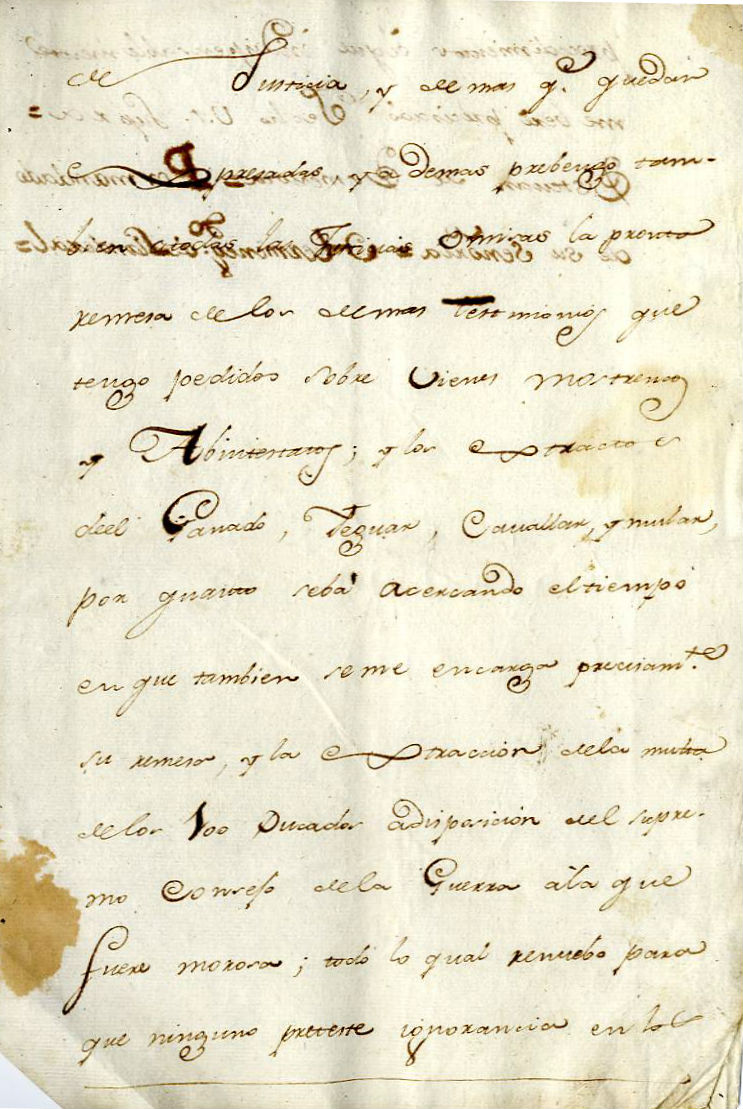 de Justicia, y demas q.e quedan
Expresadas y ademas prebengo tam-
bien atodas las Justicias Omisas la pronta
remesa de los demas testimonios que
tengo pedidos sobre Vienes mostrencos
y Abintestatos; y los Extractos
deel Ganado, Yeguar, Cavallar, y mular,
por quanto sebá acercando el tiempo
en que tambien se me encarga precisam.te
su remesa, y la Extraccion dela multa
delos 100 Ducados adisposicion del supre-
mo Consejo dela Guerra á la que
fuere morosa; todo lo qual renuebo para
que ninguno preteste ignorancia en lo